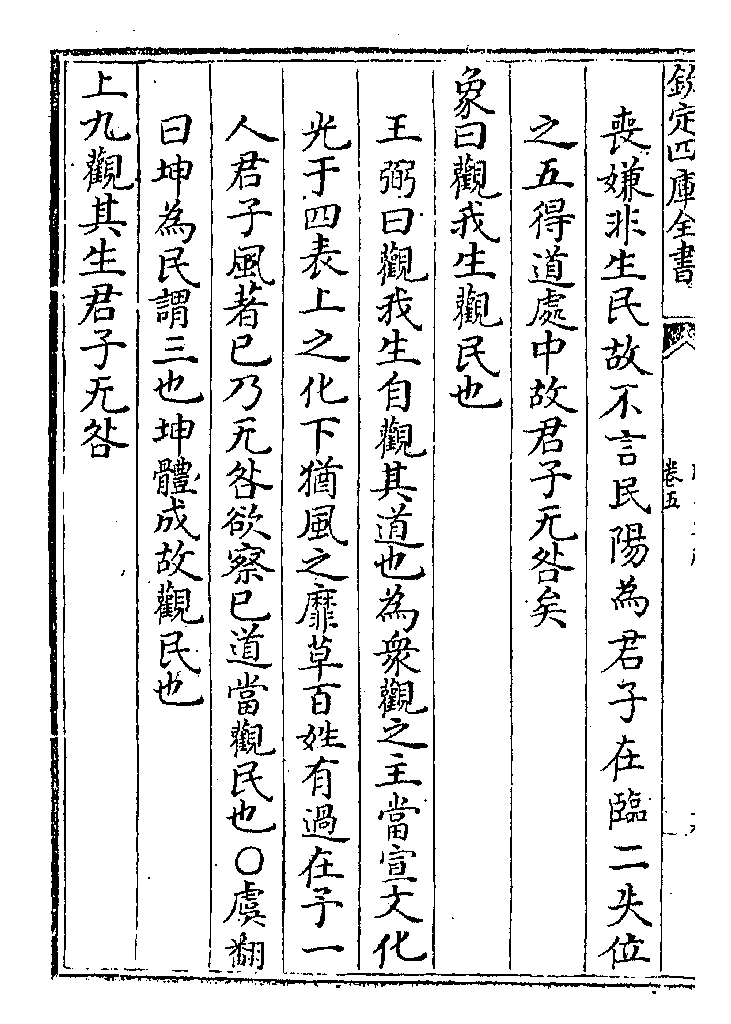 欽定四庫全書
卷五
喪嫌非生民故不言民陽為君子在臨二失位
之五得道處中故君子无咎矣
象曰觀我生觀民也
王弼曰觀我生自觀其道也為衆觀之主當宣文化
光于四表上之化下猶風之靡草百姓有過在予一
人君子風著已乃无咎欲察已道當觀民也○虞翻
曰坤為民謂三也坤體成故觀民也
上九觀其生君子无咎